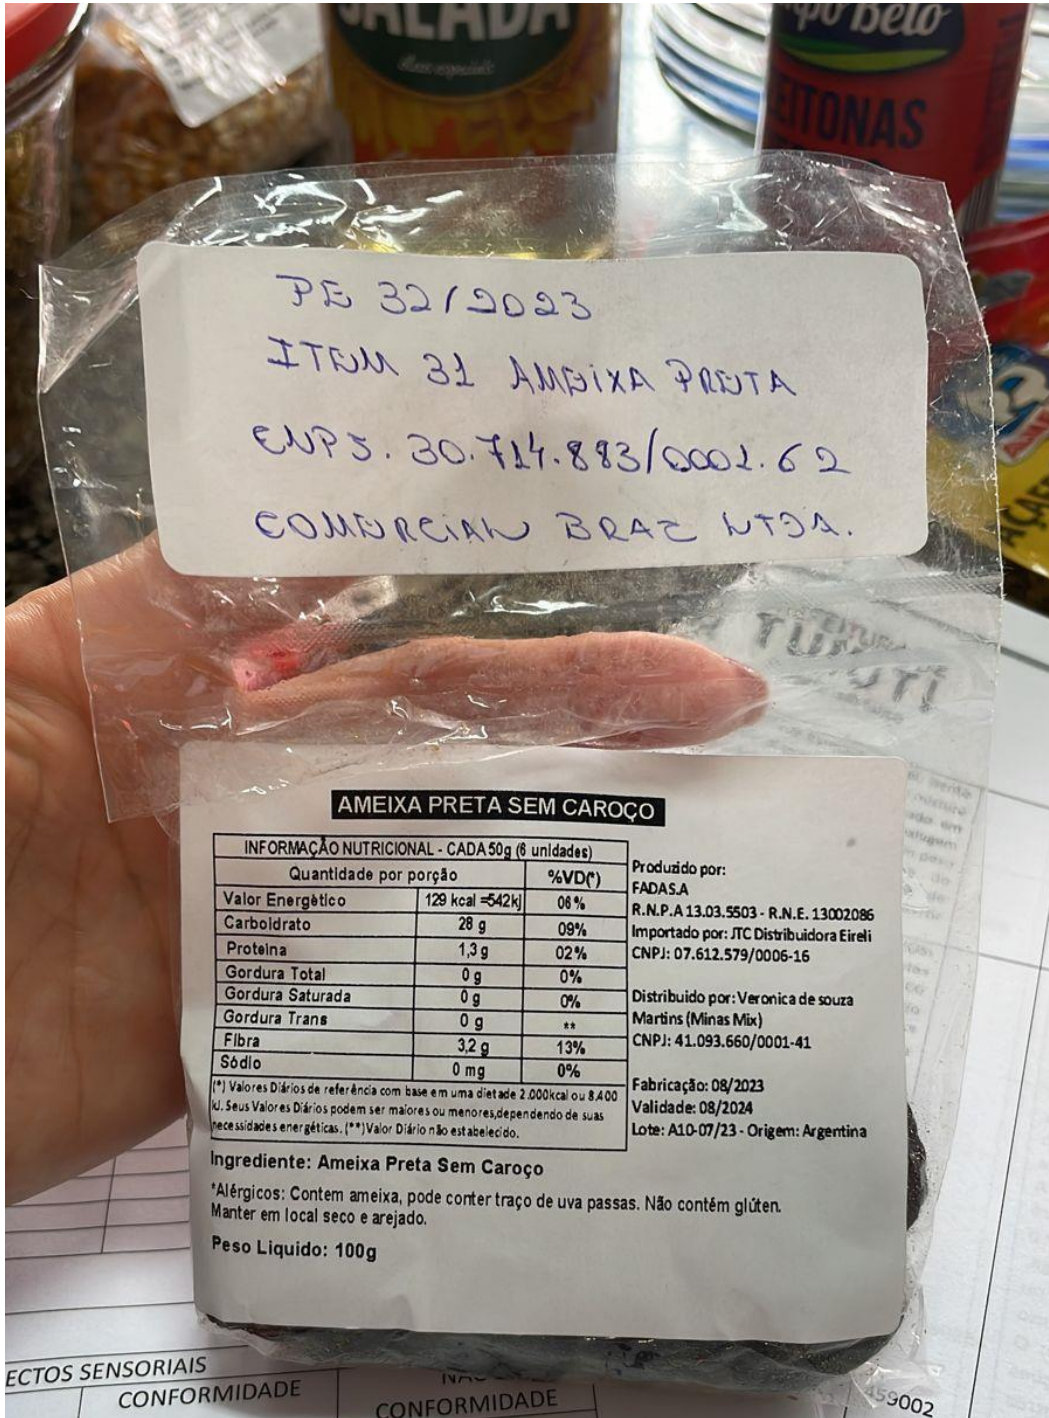 SALADA
po Belo
EITONAS
PE 32/2023
ITEM 31 AMEIXA PRETA
CNPJ. 30.714.883/0001.62
COMERCIAL BRAZ LTDA.
AMEIXA PRETA SEM CAROÇO
INFORMAÇÃO NUTRICIONAL - CADA 50g (6 unidades)
Quantidade por porção %VD(*)
Valor Energético 129 kcal =542kj 06%
Carboidrato 28 g 09%
Proteina 1,3 g 02%
Gordura Total 0 g 0%
Gordura Saturada 0 g 0%
Gordura Trans 0 g **
Fibra 3,2 g 13%
Sódio 0 mg 0%
(*) Valores Diários de referência com base em uma dieta de 2.000kcal ou 8.400
kJ. Seus Valores Diários podem ser maiores ou menores,dependendo de suas
necessidades energéticas. (**)Valor Diário não estabelecido.
Produzido por:
FADAS.A
R.N.P.A 13.03.5503 - R.N.E. 13002086
Importado por: JTC Distribuidora Eireli
CNPJ: 07.612.579/0006-16
Distribuido por: Veronica de souza
Martins (Minas Mix)
CNPJ: 41.093.660/0001-41
Fabricação: 08/2023
Validade: 08/2024
Lote: A10-07/23 - Origem: Argentina
Ingrediente: Ameixa Preta Sem Caroço
*Alérgicos: Contem ameixa, pode conter traço de uva passas. Não contém glúten.
Manter em local seco e arejado.
Peso Liquido: 100g
ECTOS SENSORIAIS
CONFORMIDADE
CONFORMIDADE
459002